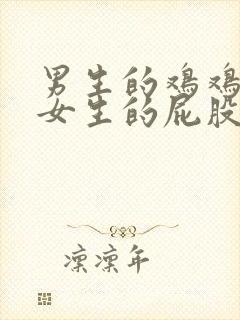 男生的鸡鸡
女生的屁股
凛凛年